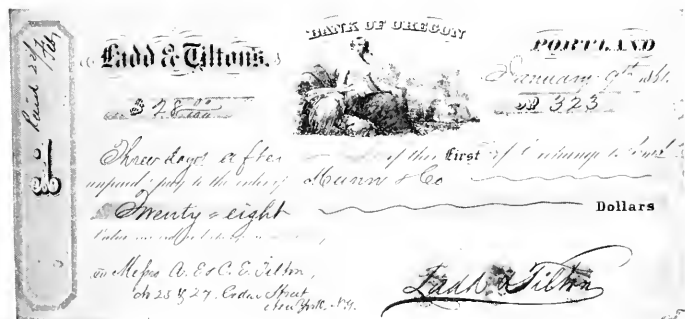 BANK OF OREGON
Ladd & Tiltons. PORTLAND
January 9th 1861.
$28.00 No 323
Three days after of this First of Exchange
unpaid pay to the order of Munn & Co
Twenty-eight Dollars
Value received
Messrs A. E & C. E. Tilton,
No 25 & 27. Cedar Street
New York. N.Y.
Ladd & Tilton
Paid